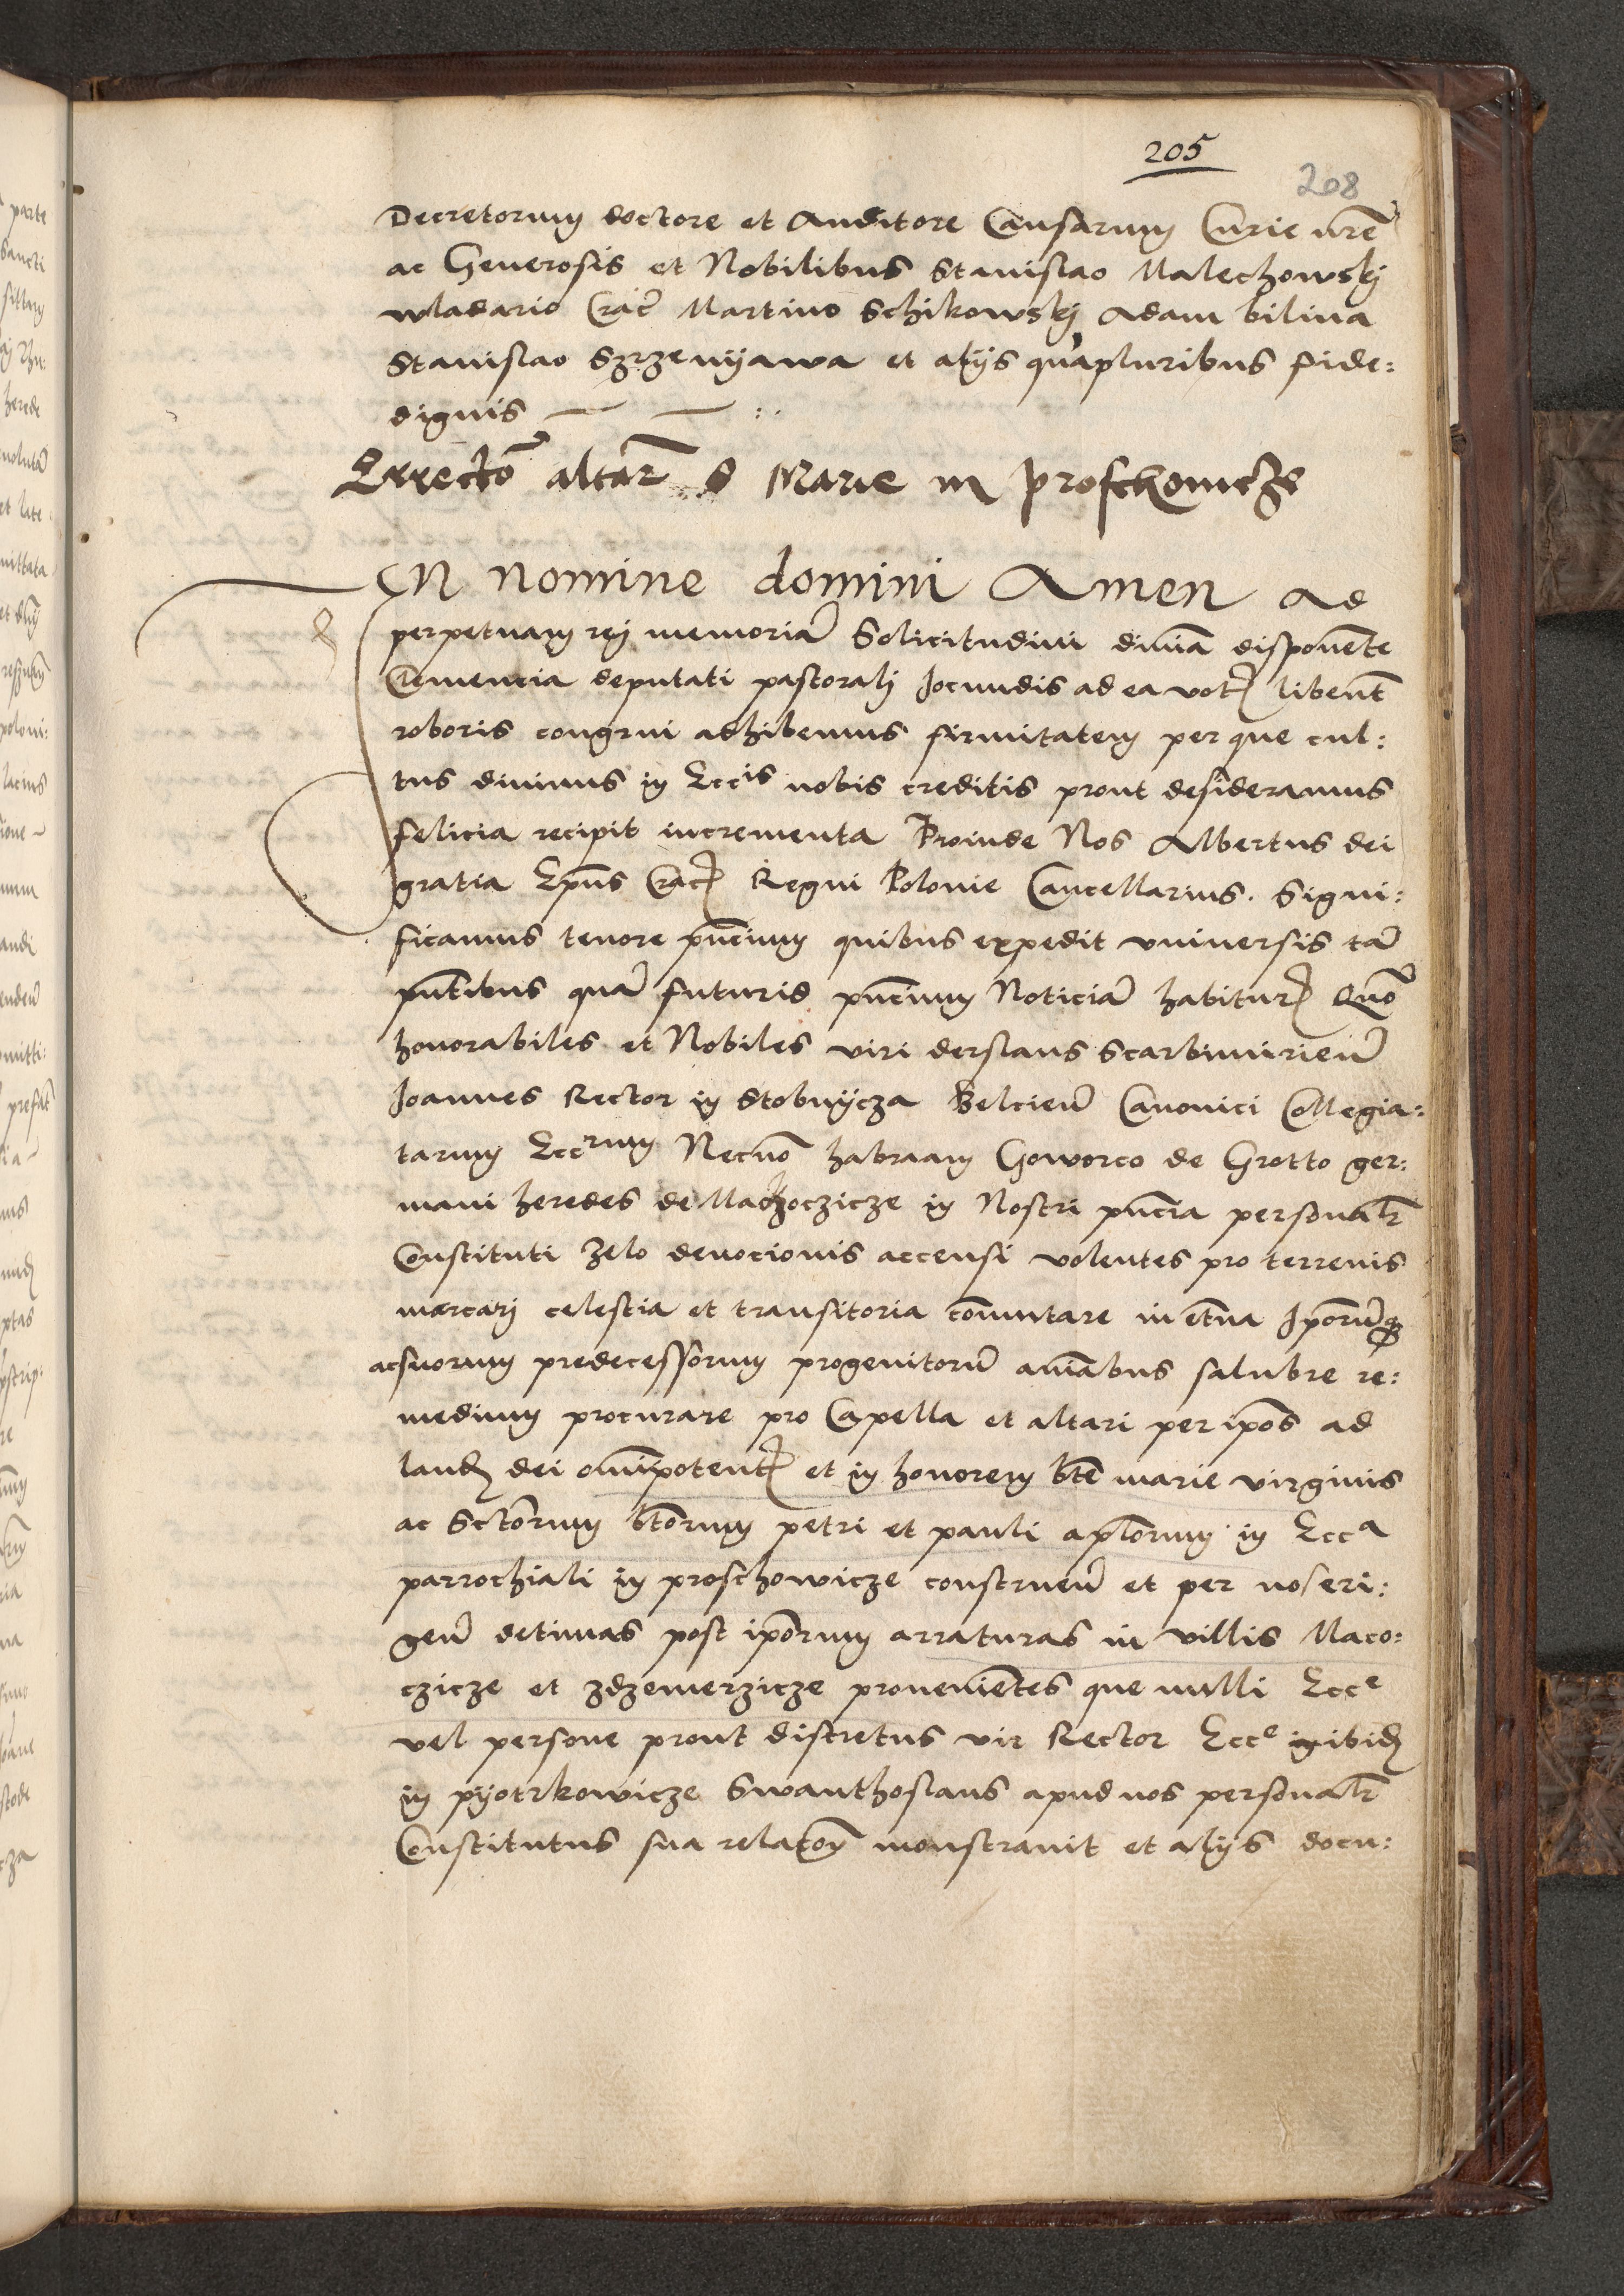 205
208
Decretorum doctore et Auditore Causarum Curie nrē
ac Generosis et Nobilibus Stanislao Malechowskj
wladario Crac̄ Martino Schikowskj Adam bilina
Stanislao Szrzenyawa et alijs quāpluribus fide:
dignis — — :.
Errectō altar̄ S Marie in proschowicze
IN nomine domini Amen Ad
perpetuam rej memoriā Solicitudini diuīa disponēte
Clemencia deputati pastoralj Jocundis ad ea vot libent̄
roboris congrui adhibemus firmitatem per que cul:
tus diuinus in Eccis nobis creditis prout desideramus
felicia recipit incrementa Proinde Nos Albertus dei
gratia Ep̄us Crac Regni Polonie Cancellarius. Signi:
ficamus tenore pn̄cium quibus expedit vniuersis tā
pn̄tibus quā futuris pn̄cium Noticiā habitur Quō
honorabiles et Nobiles viri derslaus Scarbimirien̄
Joannes Rector in Stobnycza Belcien̄ Canonici Collegia:
tarum Eccrum Necnō habraam Goworco de Grotto ger:
mani heredes de Maczoczicze in Nostri pn̄cia personalr̄
Constituti Zelo deuocionis accensi volentes pro terrenis
mercarj celestia et transitoria cōmutare in etn̄a Ip̄orūq
ac suorum predecessorum progenitorū aīabus salubre re:
medium procurare pro Capella et altari per ip̄os ad
laud dei om̄ipotent et in honorem btē marie virginis
ac Sctōrum btōrum petri et pauli aplōrum in Ecca
parrochiali in proschowicze construen̄ et per nos eri:
gen̄ decimas post ip̄orum arraturas in villis Maco:
czicze et zdzemerzicze prouenientes que nulli Ecce
vel persone prout discretus vir Rector Ecce inibid
in pyotrkowicze Swanthoslaus apud nos personalr̄
Constitutus sua relacōē monstrauit et alijs docu: